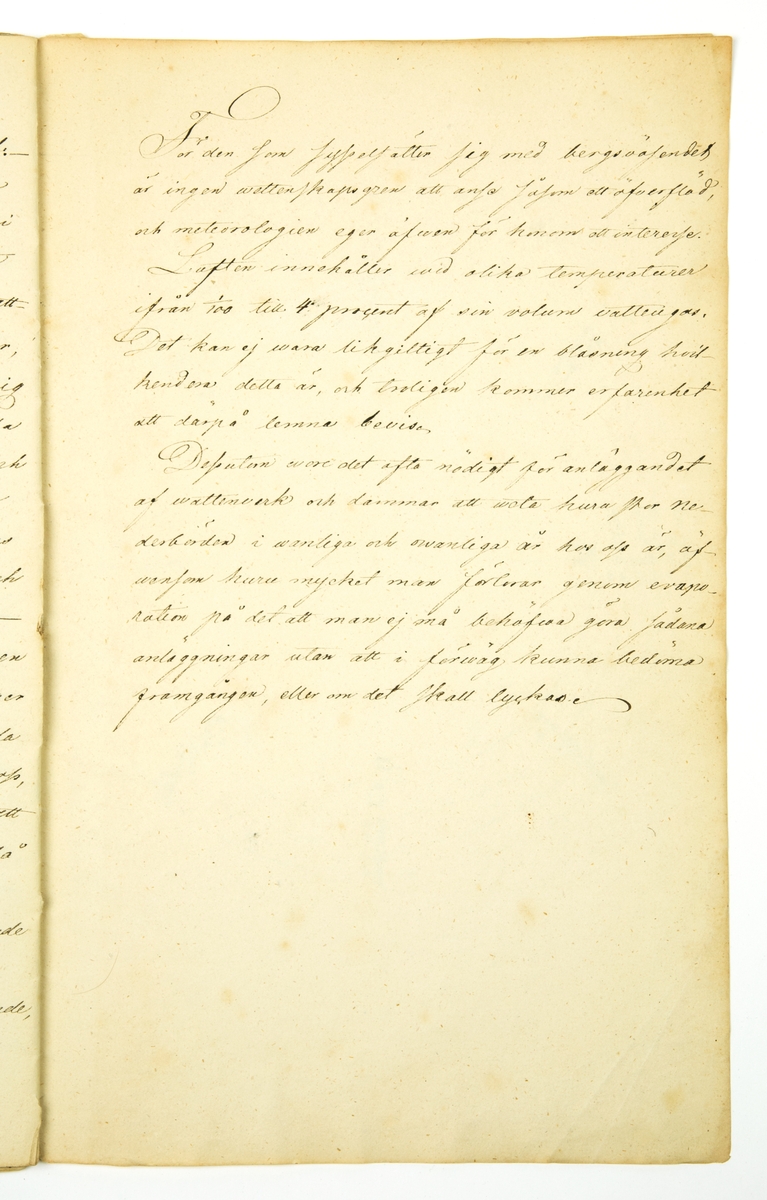 För den som sysselsätter sig med bergsväsendet
är ingen wettenskapsgren att anse såsom ett öfverflöd,
och meteorologien eger äfwen för honom ett interesse.
Luften innehåller wid olika temperaturer
ifrån 1/100 till 4 procent af sin volum vattengas.
Det kan ej wara likgiltigt för en blåsning hvil-
kendera detta är, och troligen kommer erfarenhet
att därpå lemna bevis.
Dessutom wore det ofta nödigt för anläggandet
af wattenverk och dammar att weta huru stor ne-
derbörden i wanliga och owanliga år hos oss är, äf-
wensom huru mycket man förlorar genom evapo-
ration på det att man ej må behöfwa göra sådana
anläggningar utan att i förwäg kunna bedöma
framgången, eller om det skall lyckas.